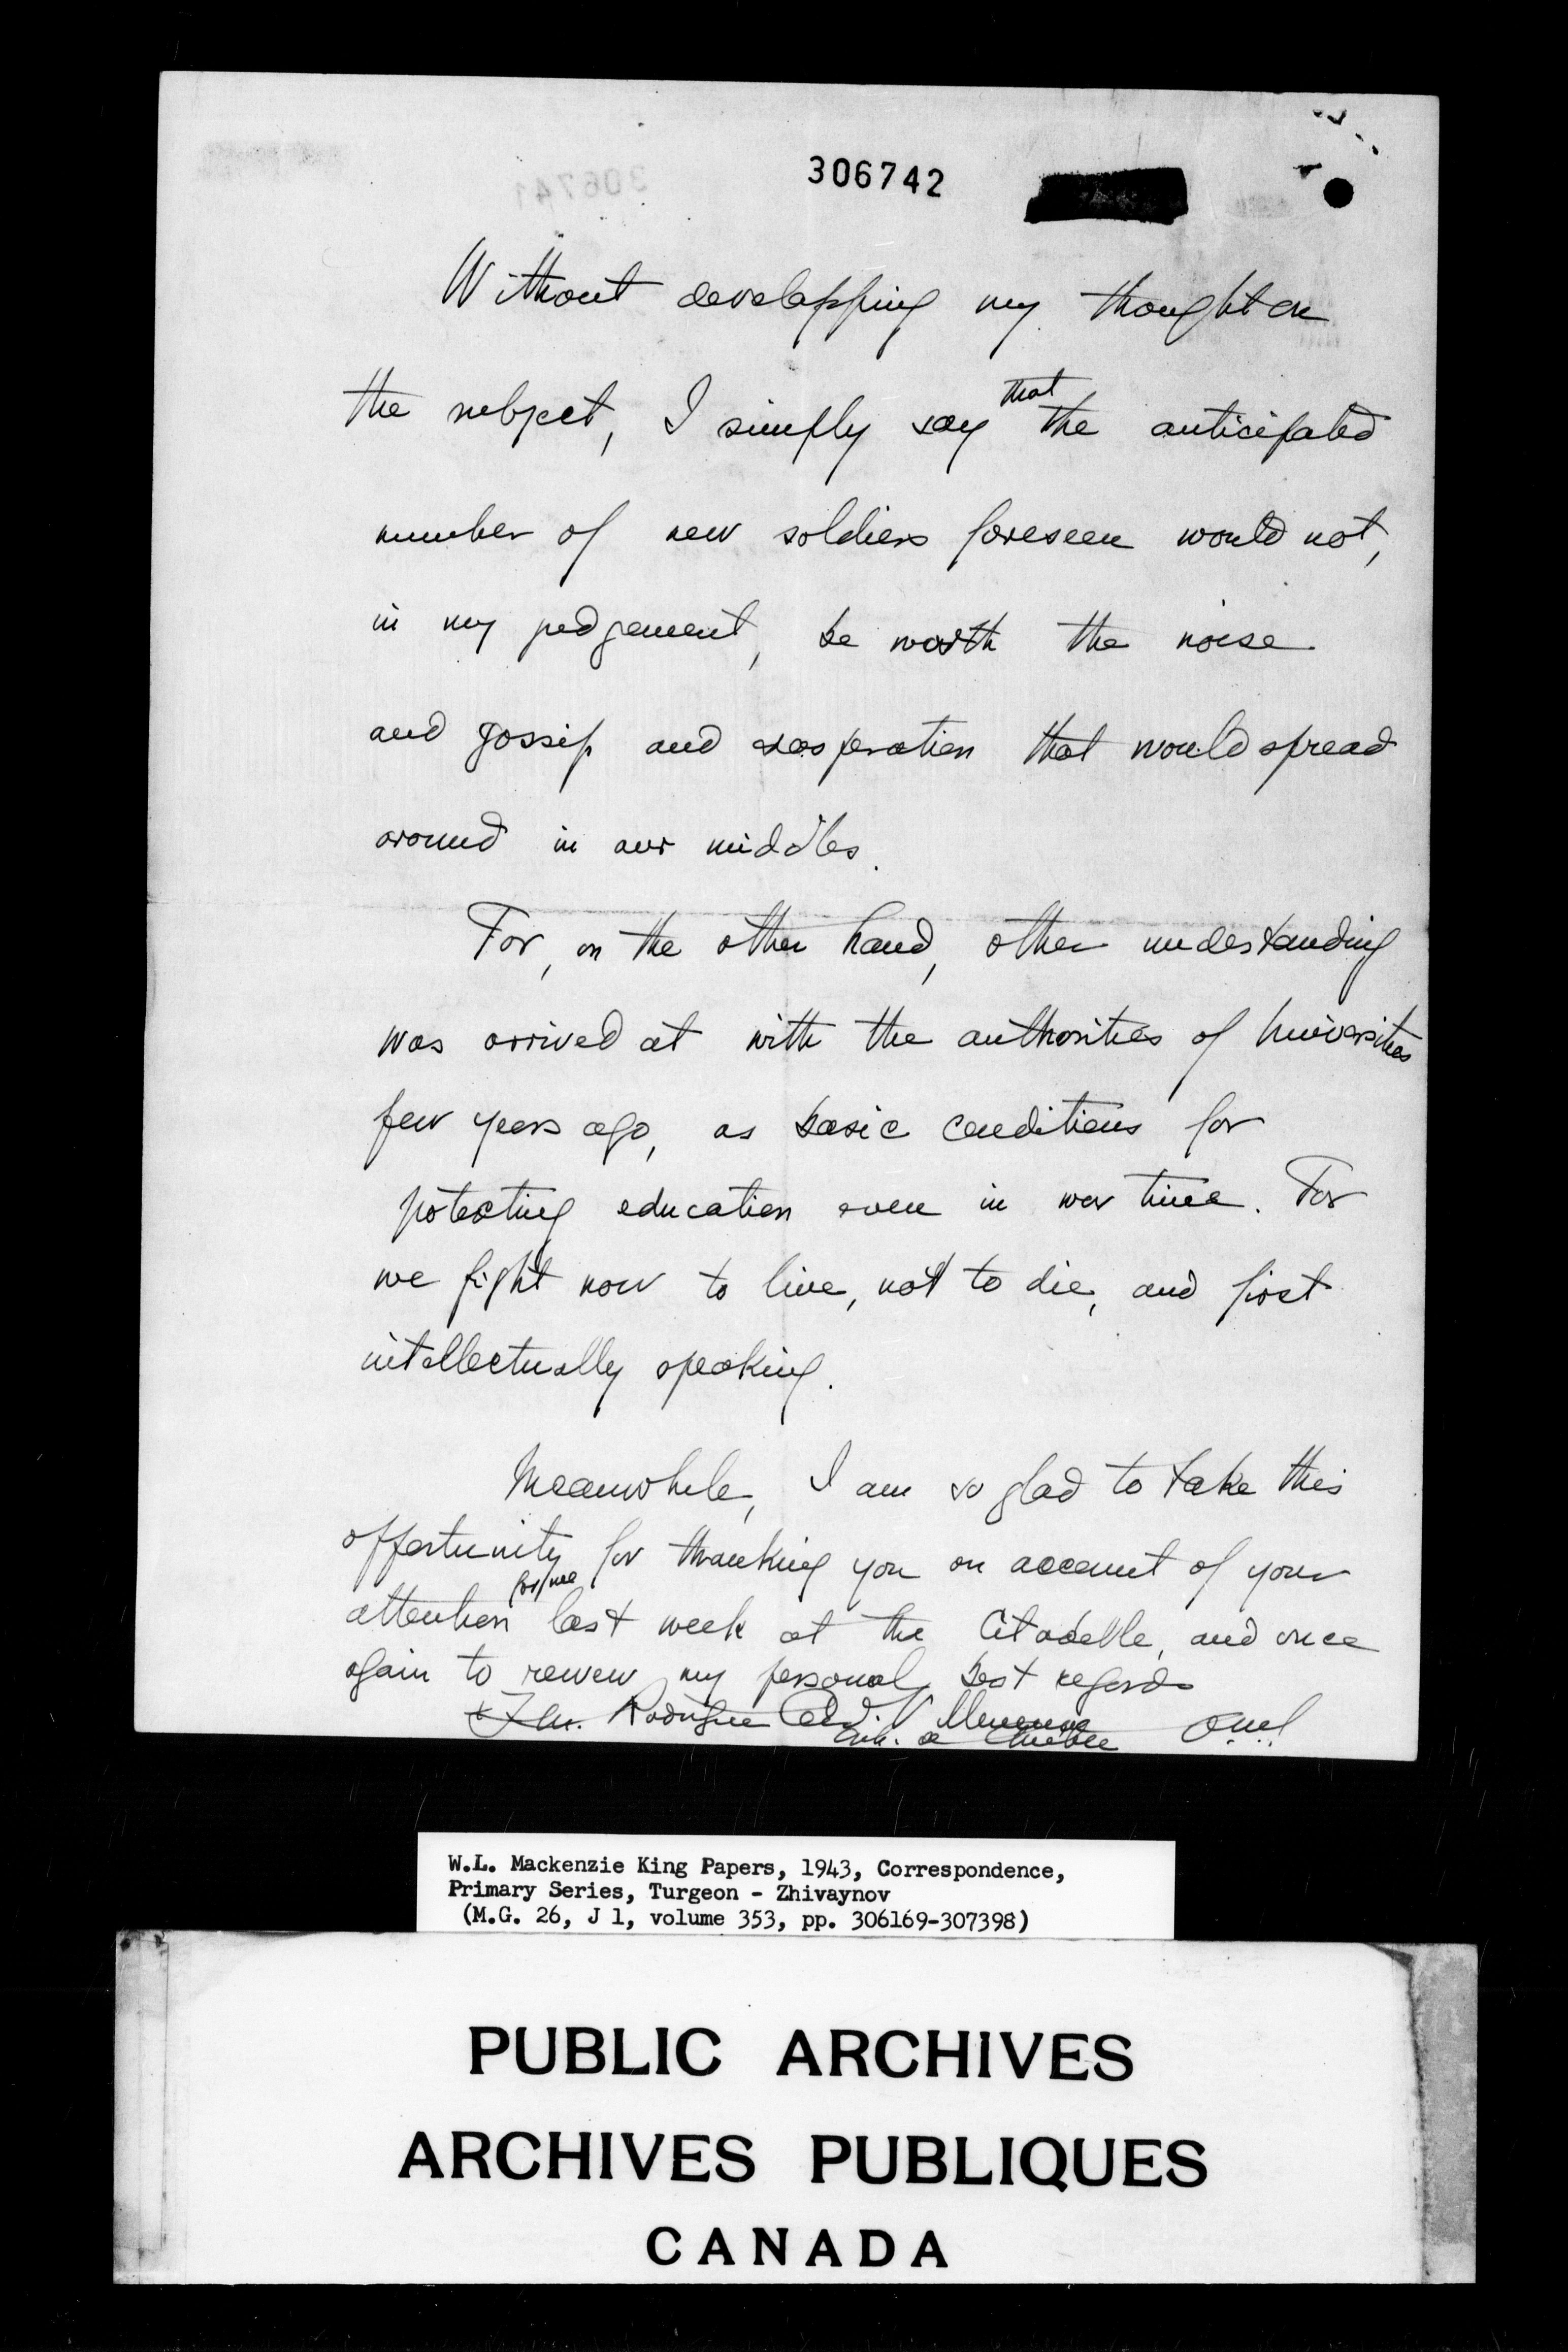 306742
306741
Without developping my thought on
the subject, I simply say that the anticipated
number of new soldiers foreseen would not,
in my judgement, be worth the noise
and gossip and exasperation that would spread
around in our middles.
For, on the other hand, other understanding
was arrived at with the authorities of Universities
few years ago, as basic conditions for
protecting education even in war time. For
we fight now to live, not to die, and first
intellectually speaking.
Meanwhile, I am so glad to take this
opportunity for thanking you on account of your
attention for me last week at the Citadelle, and once
again to renew my personal best regards
Rodrigue Card. Villeneuve O.M.I.
Arch. de Québec
W.L. Mackenzie King Papers, 1943, Correspondence,
Primary Series, Turgeon - Zhivaynov
(M.G. 26, J 1, volume 353, pp. 306169-307398)
PUBLIC ARCHIVES
ARCHIVES PUBLIQUES
CANADA